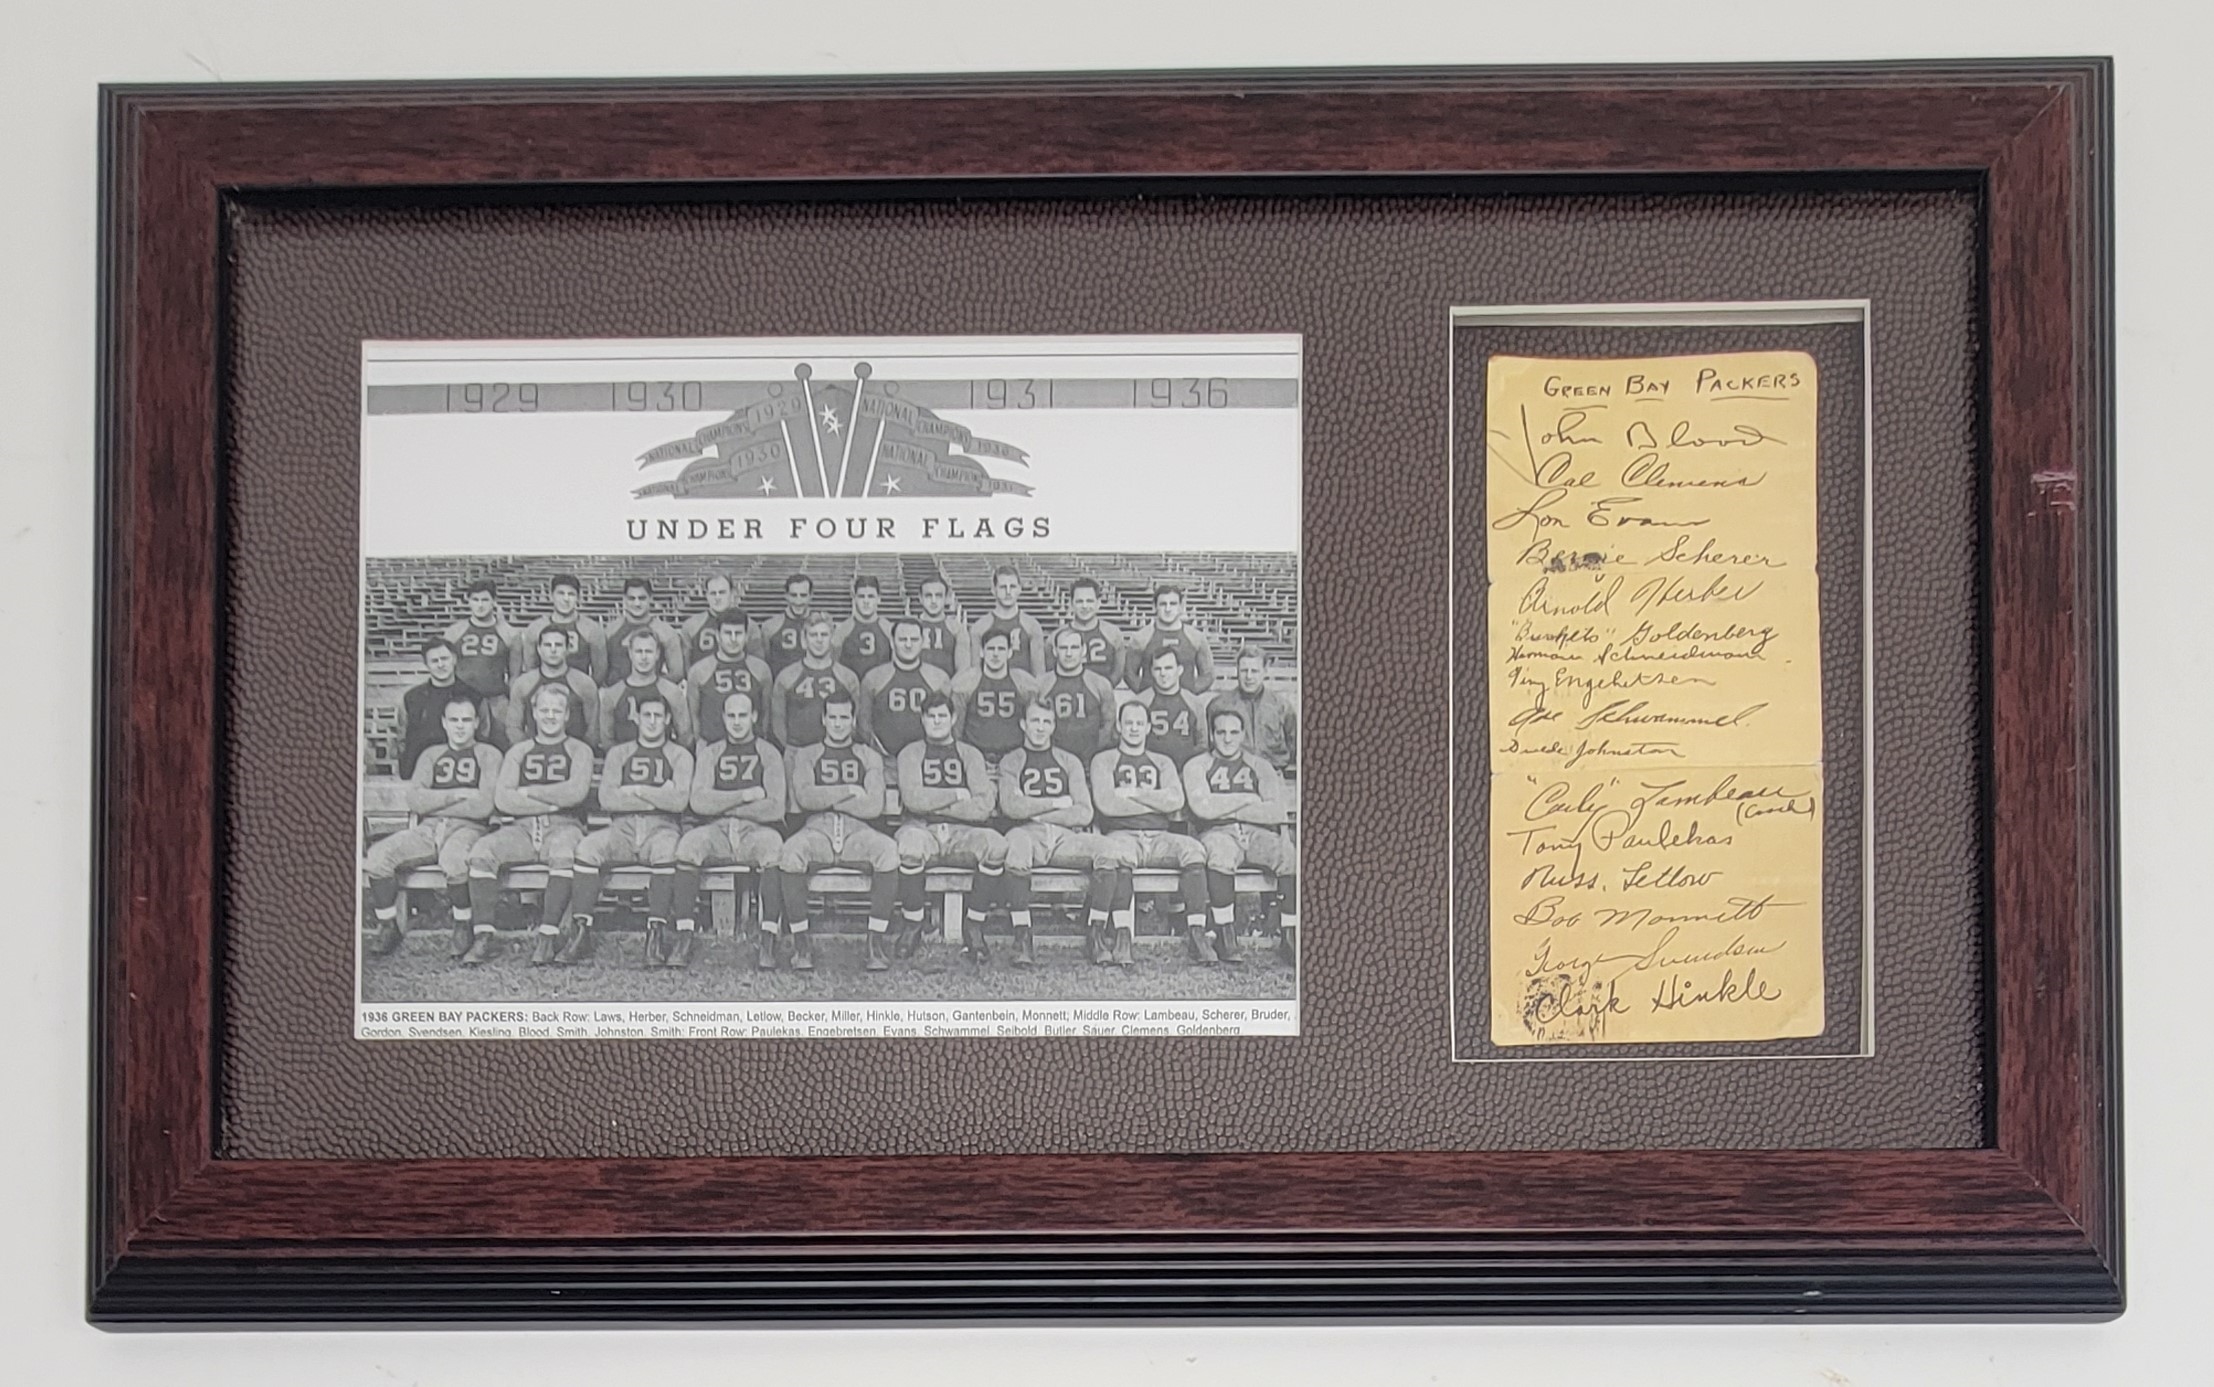 1929 1930 1931 1936
1929 NATIONAL
NATIONAL CHAMPIONS CHAMPIONS 1930
1930 NATIONAL
NATIONAL CHAMPIONS CHAMPIONS 1931
UNDER FOUR FLAGS
29 3 1 2
53 43 60 55 61 54
39 52 51 57 58 59 25 33 44
1936 GREEN BAY PACKERS: Back Row: Laws, Herber, Schneidman, Letlow, Becker, Miller, Hinkle, Hutson, Gantenbein, Monnett; Middle Row: Lambeau, Scherer, Bruder,
Gordon, Svendsen, Kiesling, Blood, Smith, Johnston, Smith; Front Row: Paulekas, Engebretsen, Evans, Schwammel, Seibold, Butler, Sauer, Clemens, Goldenberg
GREEN BAY PACKERS
John Blood
Cal Clemens
Lon Evans
Bernie Scherer
Arnold Herber
"Buckets" Goldenberg
Herman Schneidman
Tiny Engebretsen
Ade Schwammel
Swede Johnston
"Curly" Lambeau
(Coach)
Tony Paulekas
Russ. Letlow
Bob Monnett
George Svendsen
Clark Hinkle